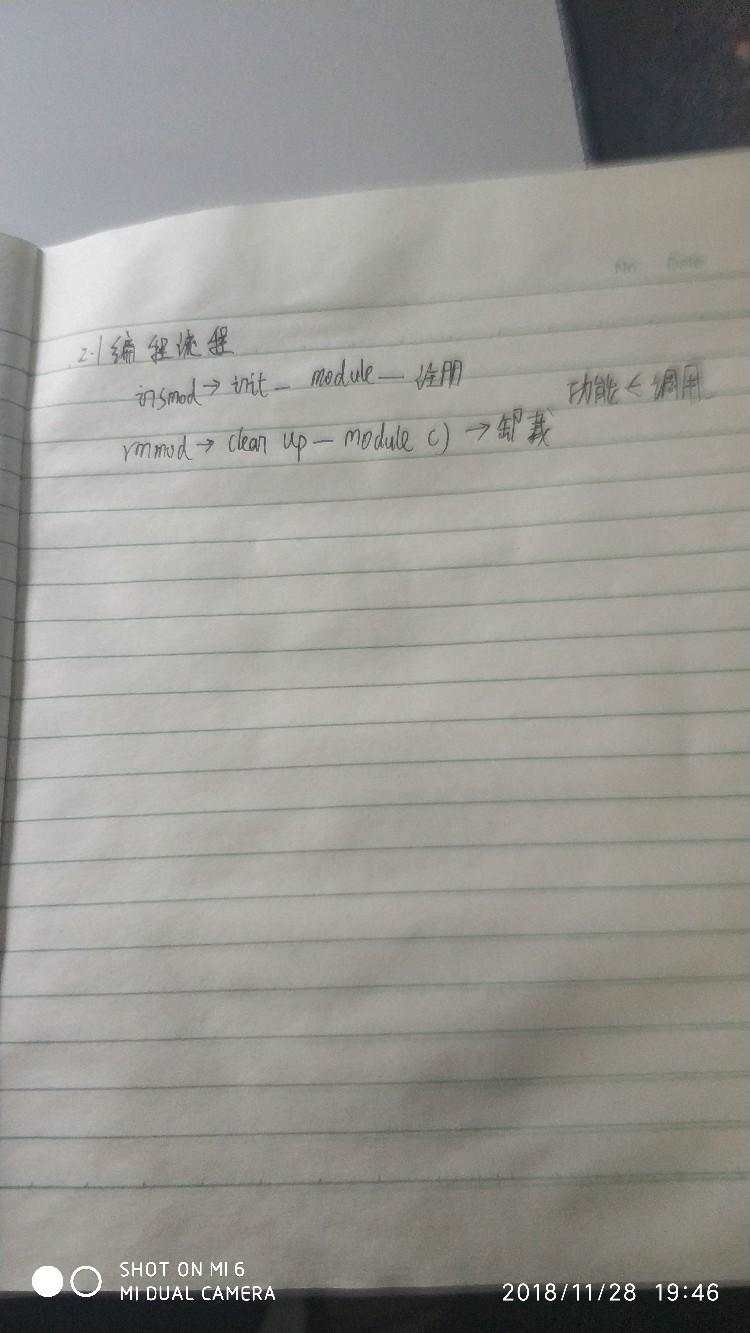 No Date
2.1 编程流程
insmod → init_ module — 注册
功能 < 调用
rmmod → clean up — module () → 卸载
SHOT ON MI 6
MI DUAL CAMERA
2018/11/28 19:46